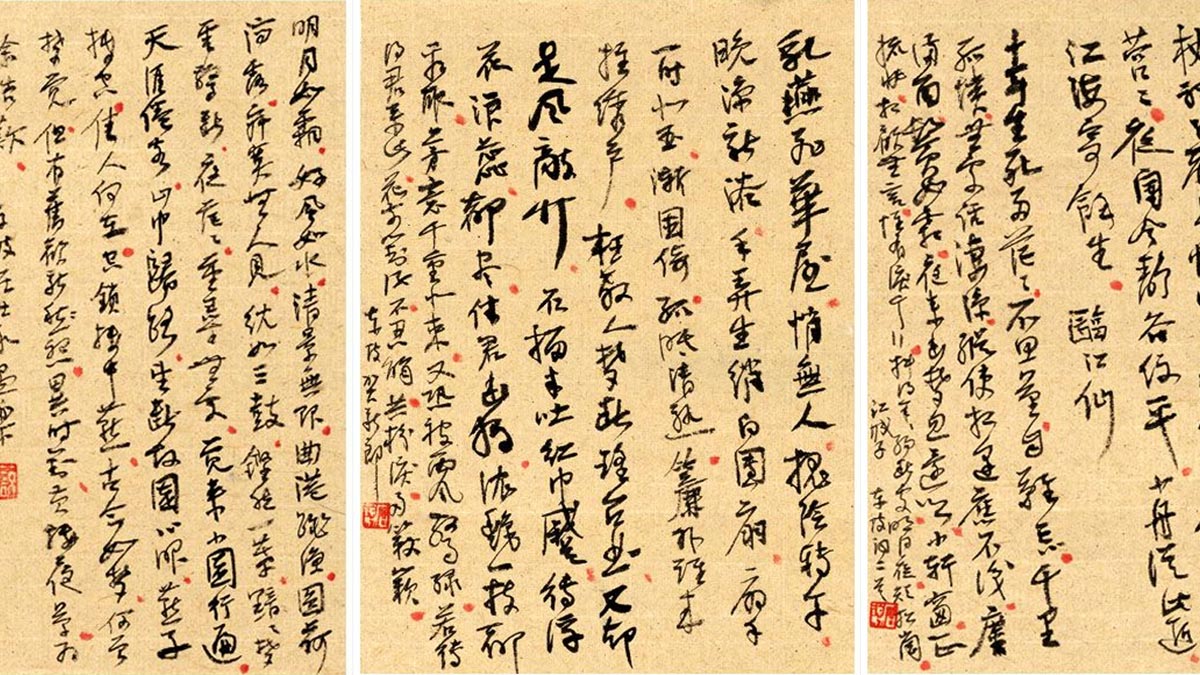 營々夜闌靜谷紋平小舟從此逝
江海寄餘生 臨江仙
十年生死兩茫々不思量自難忘千里
孤墳無處話淒涼縱使相逢應不識塵
滿面鬢如霜夜來幽夢忽還鄉小軒窗正
梳妝相顧無言惟有淚千行料得年年腸斷處明月夜短松岡
江城子 東坡詞二首
乳燕飛華屋悄無人槐陰轉午
晚涼新浴手弄生綃白團扇扇手
一時似玉漸困倚孤眠清熟簾外誰來
推繡戶 枉教人夢斷瑤臺曲又卻
是風敲竹 石榴半吐紅巾蹙待浮
花浪蕊都盡伴君幽獨濃豔一枝細
看取芳意千重似束又恐被西風驚綠若待
得君來向此花前對酒不忍觸共粉淚兩簌簌
東坡賀新郎
明月如霜好風如水清景無限曲港跳魚圓荷
瀉露寂寞無人見紞如三鼓鏗然一葉黯々夢
雲驚斷夜茫々重尋無處覺來小園行遍
天涯倦客山中歸路望斷故園心眼燕子
樓空佳人何在空鎖樓中燕古今如夢何曾
夢覺但有舊歡新怨異時對黃樓夜景為
余浩歎